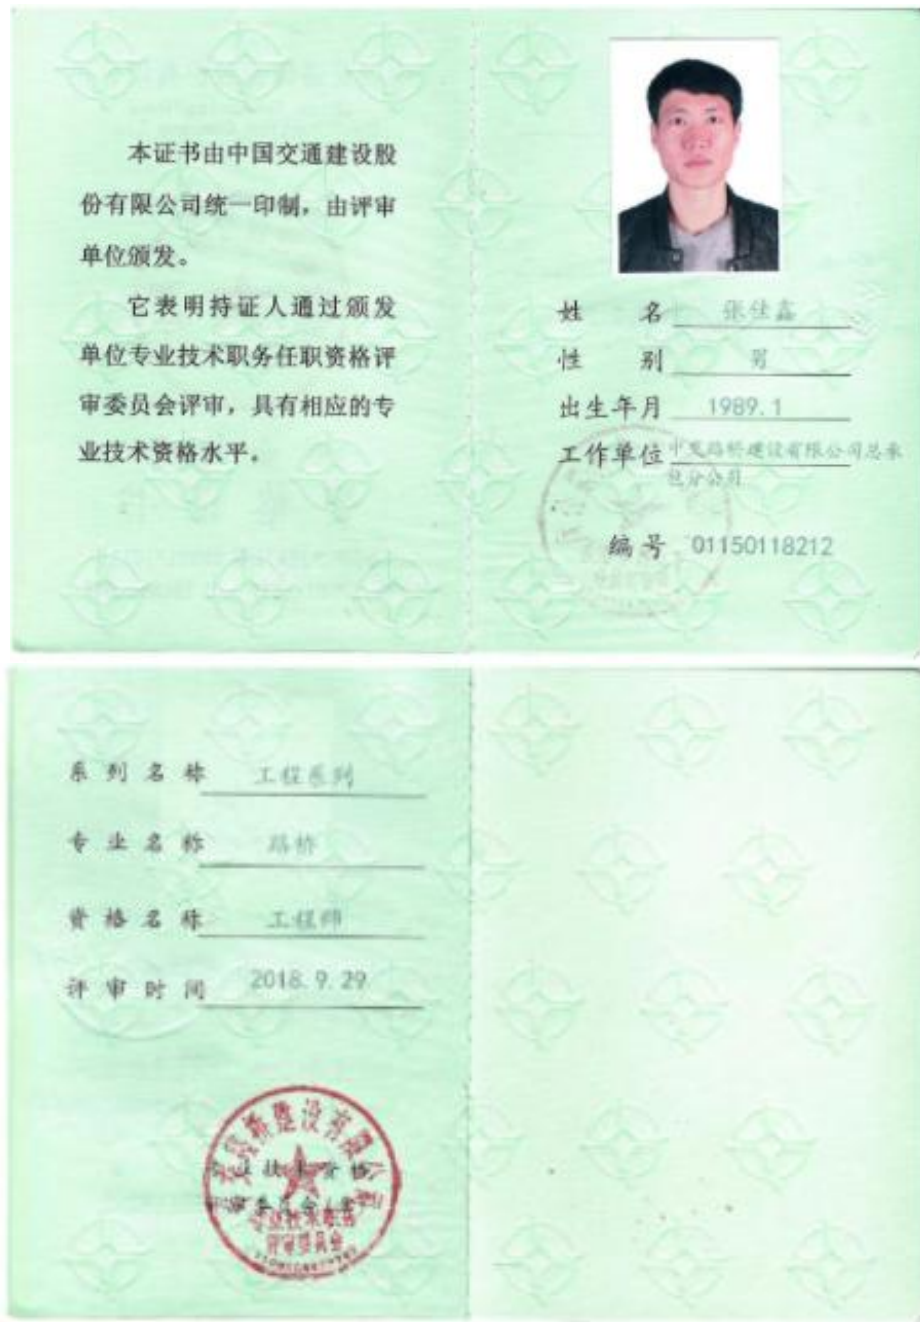 本证书由中国交通建设股
份有限公司统一印制，由评审
单位颁发。
它表明持证人通过颁发
单位专业技术职务任职资格评
审委员会评审，具有相应的专
业技术资格水平。
姓 名 张仕鑫
性 别 男
出生年月 1989.1
工作单位 中交路桥建设有限公司总承
包分公司
编号 01150118212
系列名称 工程系列
专业名称 路桥
资格名称 工程师
评审时间 2018.9.29
路桥建设有限公司
专业技术职务
评审委员会